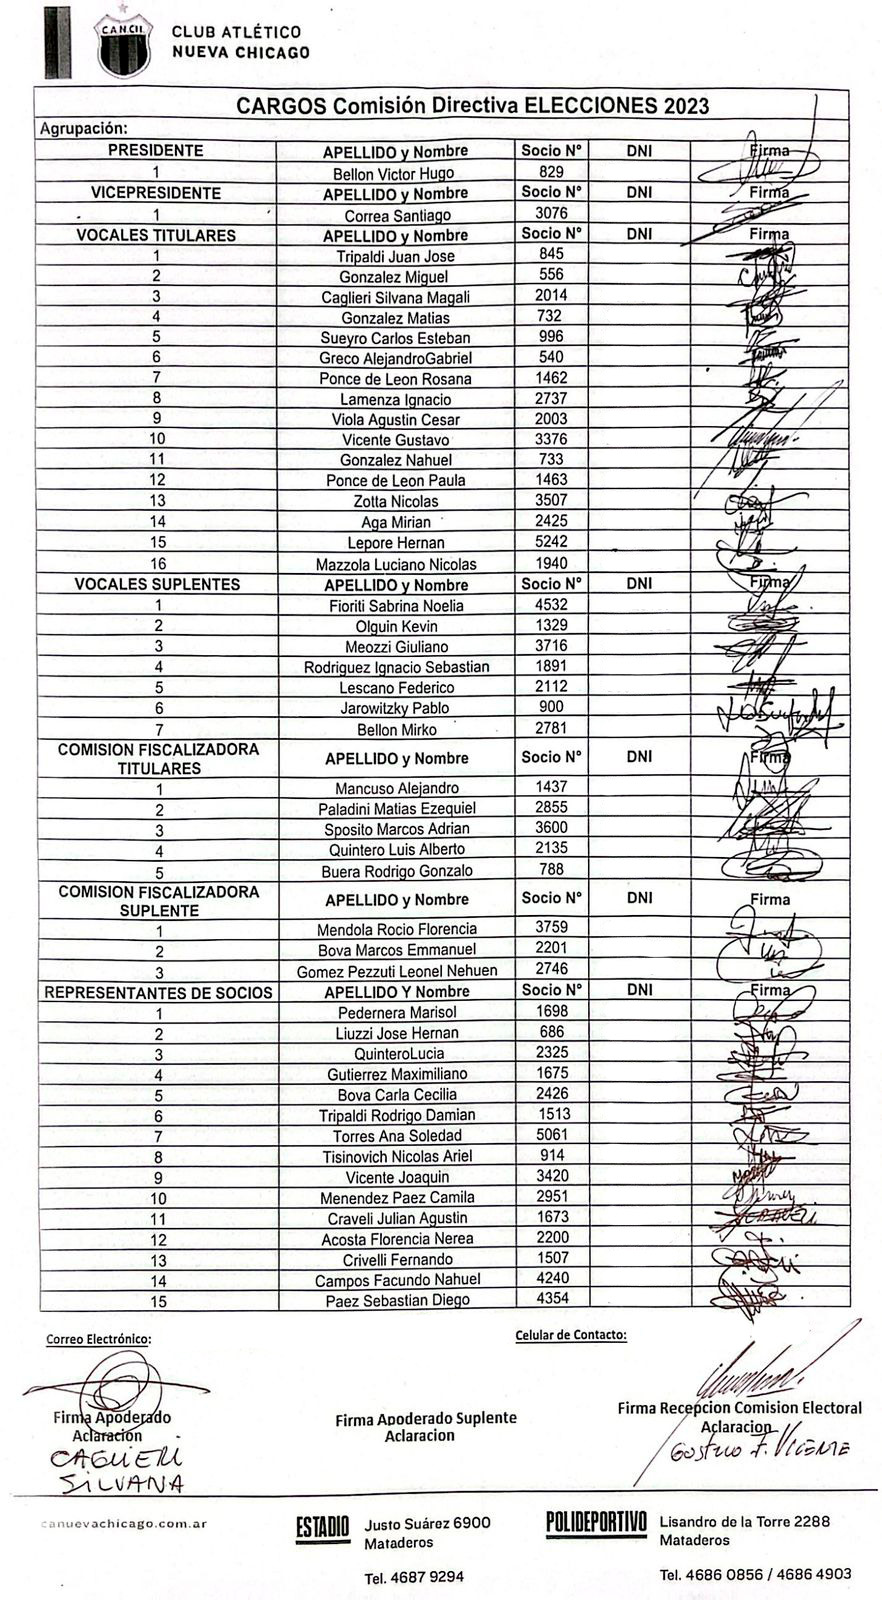 CANCH
CLUB ATLÉTICO
NUEVA CHICAGO
CARGOS Comisión Directiva ELECCIONES 2023
Agrupación:
PRESIDENTE APELLIDO y Nombre Socio Nº DNI Firma
1 Bellon Victor Hugo 829
VICEPRESIDENTE APELLIDO y Nombre Socio Nº DNI Firma
1 Correa Santiago 3076
VOCALES TITULARES APELLIDO y Nombre Socio Nº DNI Firma
1 Tripaldi Juan Jose 845
2 Gonzalez Miguel 556
3 Caglieri Silvana Magali 2014
4 Gonzalez Matias 732
5 Sueyro Carlos Esteban 996
6 Greco AlejandroGabriel 540
7 Ponce de Leon Rosana 1462
8 Lamenza Ignacio 2737
9 Viola Agustin Cesar 2003
10 Vicente Gustavo 3376
11 Gonzalez Nahuel 733
12 Ponce de Leon Paula 1463
13 Zotta Nicolas 3507
14 Aga Mirian 2425
15 Lepore Hernan 5242
16 Mazzola Luciano Nicolas 1940
VOCALES SUPLENTES APELLIDO y Nombre Socio Nº DNI Firma
1 Fioriti Sabrina Noelia 4532
2 Olguin Kevin 1329
3 Meozzi Giuliano 3716
4 Rodriguez Ignacio Sebastian 1891
5 Lescano Federico 2112
6 Jarowitzky Pablo 900
7 Bellon Mirko 2781
COMISION FISCALIZADORA
TITULARES APELLIDO y Nombre Socio Nº DNI Firma
1 Mancuso Alejandro 1437
2 Paladini Matias Ezequiel 2855
3 Sposito Marcos Adrian 3600
4 Quintero Luis Alberto 2135
5 Buera Rodrigo Gonzalo 788
COMISION FISCALIZADORA
SUPLENTE APELLIDO y Nombre Socio Nº DNI Firma
1 Mendola Rocio Florencia 3759
2 Bova Marcos Emmanuel 2201
3 Gomez Pezzuti Leonel Nehuen 2746
REPRESENTANTES DE SOCIOS APELLIDO Y Nombre Socio Nº DNI Firma
1 Pedernera Marisol 1698
2 Liuzzi Jose Hernan 686
3 QuinteroLucia 2325
4 Gutierrez Maximiliano 1675
5 Bova Carla Cecilia 2426
6 Tripaldi Rodrigo Damian 1513
7 Torres Ana Soledad 5061
8 Tisinovich Nicolas Ariel 914
9 Vicente Joaquin 3420
10 Menendez Paez Camila 2951
11 Craveli Julian Agustin 1673
12 Acosta Florencia Nerea 2200
13 Crivelli Fernando 1507
14 Campos Facundo Nahuel 4240
15 Paez Sebastian Diego 4354
Correo Electrónico: Celular de Contacto:
Firma Apoderado
Aclaración
CAGLIERI
SILVANA
Firma Apoderado Suplente
Aclaracion
Firma Recepcion Comision Electoral
Aclaracion
GUSTAVO F. VICENTE
canuevachicago.com.ar
ESTADIO Justo Suárez 6900
Mataderos
Tel. 4687 9294
POLIDEPORTIVO Lisandro de la Torre 2288
Mataderos
Tel. 4686 0856 / 4686 4903